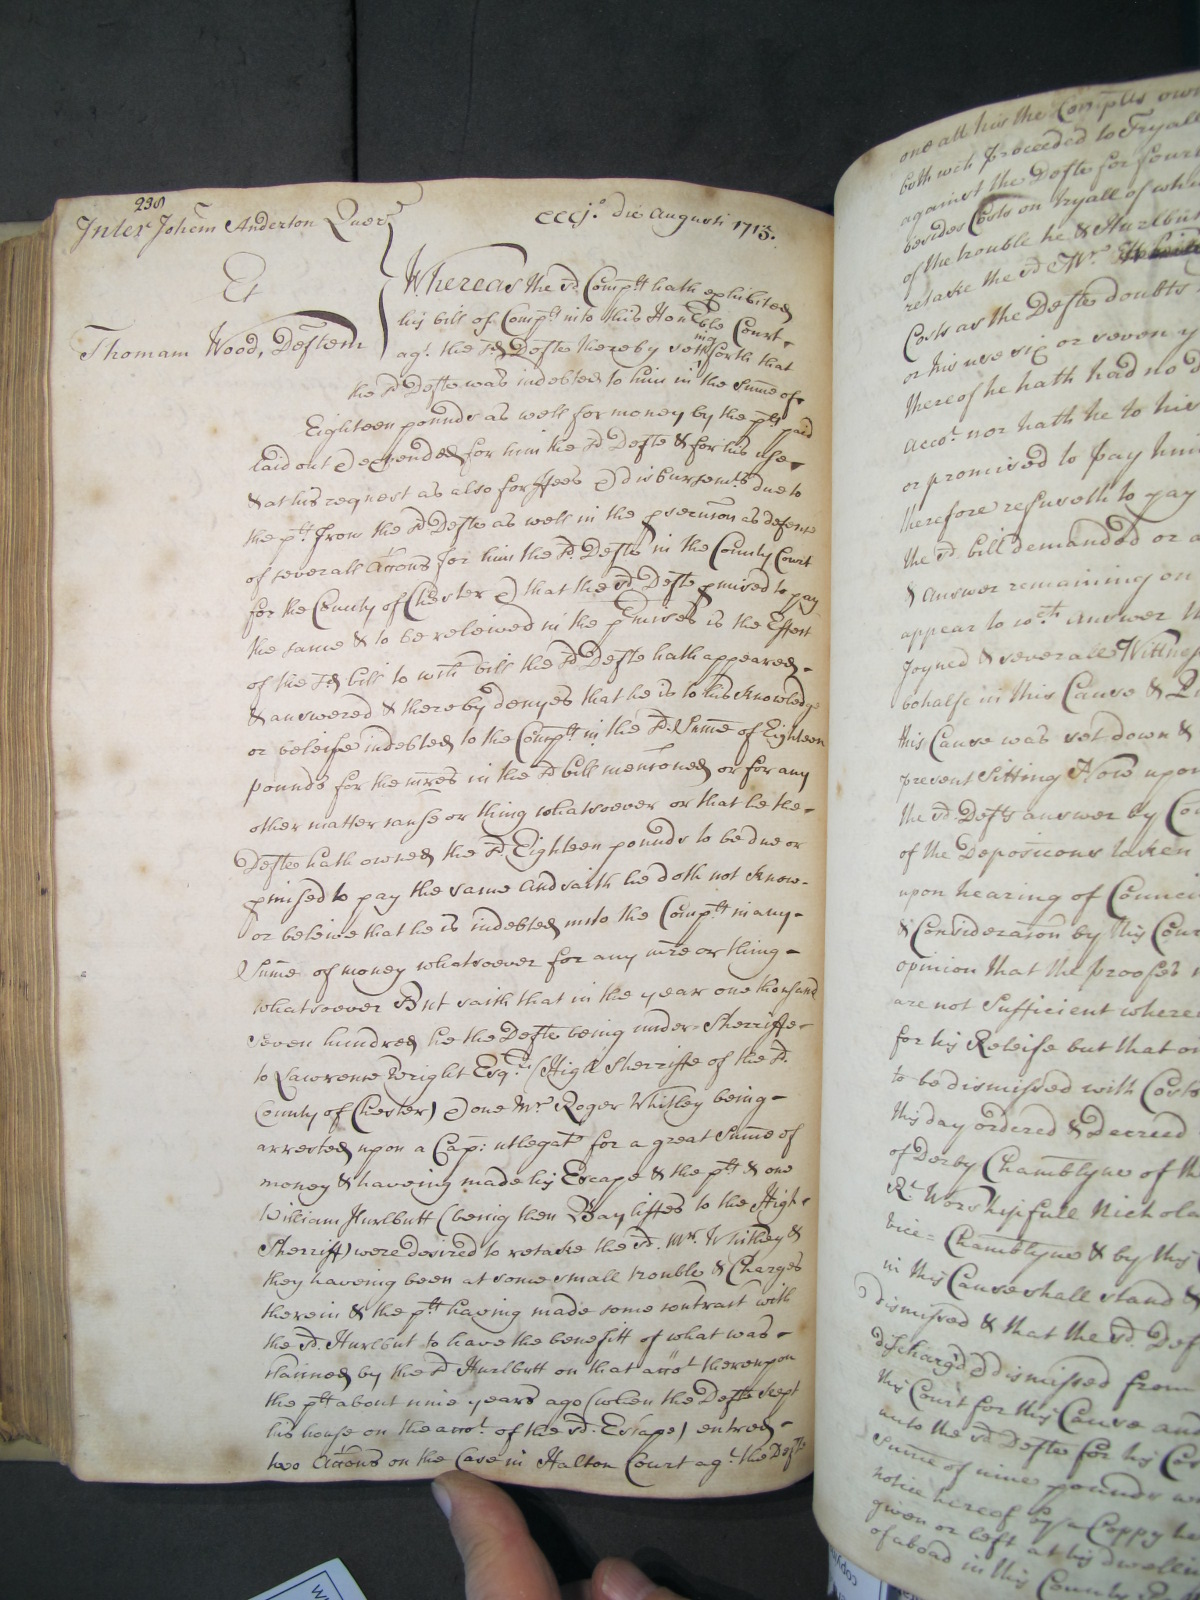 238
Inter Johem Anderton Quer
Et
Thomam Wood, Deftem
die Augusti 1713.
Whereas the sd. Complt hath exhibited
his bill of Complt into this Honble Court
agt. the sd Defte thereby setting forth that
the sd Defte was indebted to him in the Sume of
Eighteen pounds as well for money by the plt paid
laid out & expended for him the sd Defte & for his use
& at his request as also for ffees & disbursemts due to
the plt from the sd Defte as well in the psecucion as defence
of severall Accons for him the sd. Defte in the County Court
for the County of Chester & that the sd Defte pmised to pay
the same & to be releived in the pmises is the Effect
of the sd bill to wch bill the sd Defte hath appeared
& answered & thereby denyes that he is to his knowledge
or beleife indebted to the Complt in the sd. Sume of Eighteen
pounds for the mres in the sd bill menconed or for any
other matter cause or thing whatsoever or that he the
Defte hath owned the sd. Eighteen pounds to be due or
pmised to pay the same And saith he doth not know
or beleive that he is indebted unto the Complt in any
Sume of money whatsoever for any mre or thing
whatsoever But saith that in the year one thousand
seven hundred he the Defte being under-Sherriffe
to Lawrence Wright Esqr. (High Sherriffe of the sd.
County of Chester) & one Mr Roger Whitley being
arrested upon a Cap: utlegat for a great Sume of
money & haveing made his Escape & the plt & one
William Hurlbutt (being then Bayliffes to the High
Sherriff) were desired to retake the sd. Mr. Whitley &
they haveing been at some small trouble & Charges
therein & the plt having made some contract with
the sd. Hurlbut to have the benefitt of what was
claimed by the sd Hurlbutt on that accot thereupon
the plt about nine years ago (when the Defte kept
his house on the accot. of the sd. Escape) entred
two Accons on the Case in Halton Court agt. the Defte
one att his the Complts own
both wch proceeded to Tryall
against the Defte for four
besides Costs on tryall of whi
of the trouble he & Hurlbut
retake the sd Mr.
Costs as the Defte doubts
or his use six or seven y
thereof he hath had no
accot nor hath he to his
or promised to pay him
therefore refuseth to pay
the sd. bill demanded or a
& Answer remaining on
appear to wch Answer th
Joyned & severall Wittness
behalfe in this Cause &
this Cause was set down &
present Sitting Now upon
the sd. Defts answer by Cou
of the Deposicons taken
upon hearing of Council
& Consideracon by this Cour
opinion that the proofes
are not Sufficient where
for his Releife but that
to be dismissed with Costs
this day ordered & Decreed
of Derby Chamblyne of th
Rt. Worshipfull Nichola
Vice-Chamblyne & by this
in this Cause shall stand &
Dismissed & that the sd. Def
discharg'd & dismissed from
this Court for this Cause and
unto the sd Defte for his Cos
Sume of nine pounds
notice hereof by a Coppy he
given or left at his dwellin
of aboad in this County